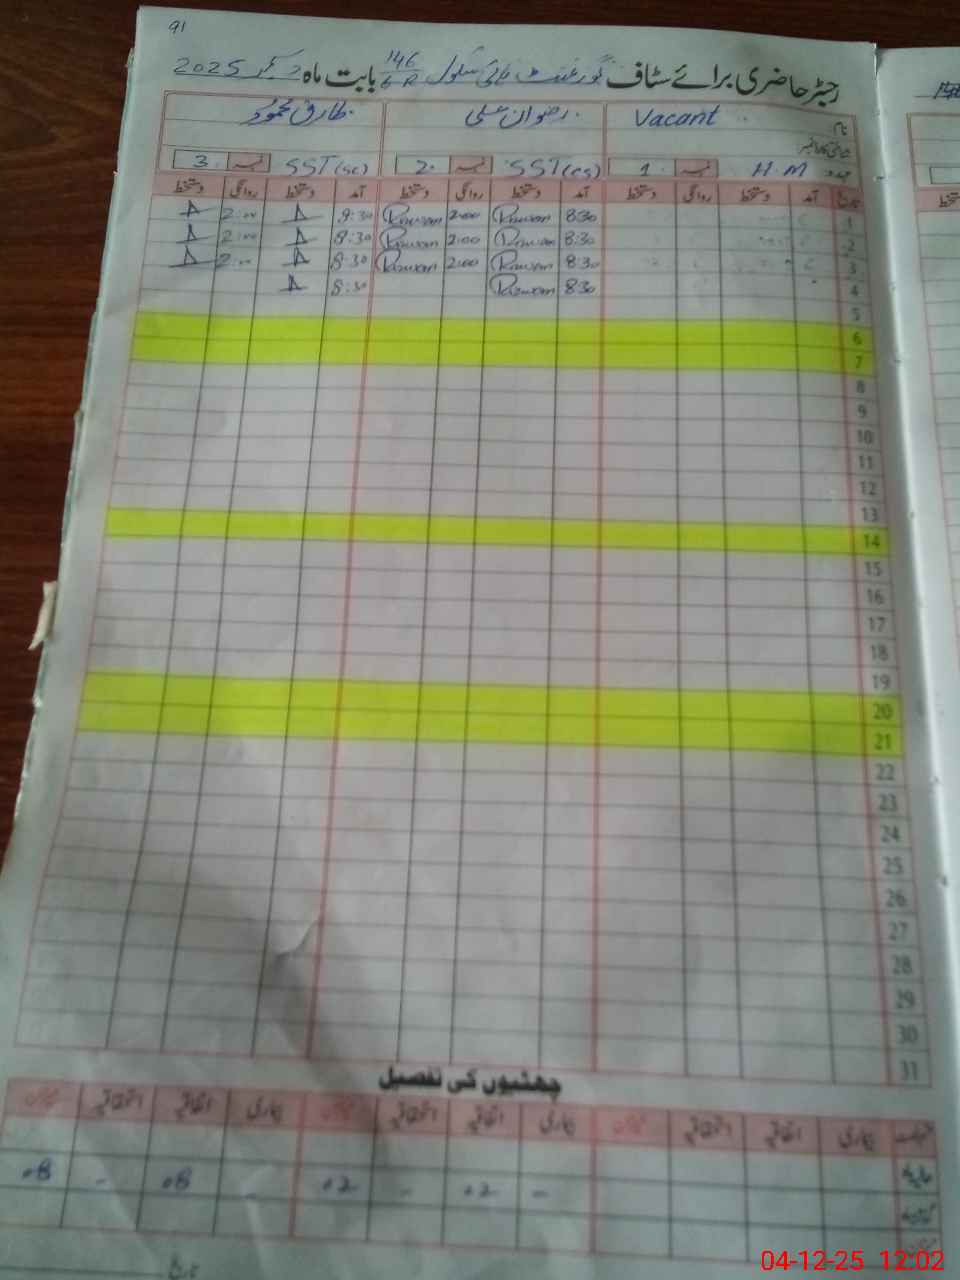 91
رجسٹر حاضری برائے سٹاف گورنمنٹ ہائی سکول 146/6-R بابت ماہ دسمبر 2025
نام Vacant رضوان علی طارق محمود
شناختی کارڈ نمبر
عہدہ H.M نمبر 1 SST(cs) نمبر 2 SST(sc) نمبر 3
تاریخ آمد دستخط روانگی دستخط آمد دستخط روانگی دستخط آمد دستخط روانگی دستخط
1 8:30 Rizwan 2:00 Rizwan 8:30 2:00
2 8:30 Rizwan 2:00 Rizwan 8:30 2:00
3 8:30 Rizwan 2:00 Rizwan 8:30 2:00
4 8:30 Rizwan 8:30
5
6
7
8
9
10
11
12
13
14
15
16
17
18
19
20
21
22
23
24
25
26
27
28
29
30
31
چھٹیوں کی تفصیل
بیماری اتفاقیہ استحقاقیہ میزان بیماری اتفاقیہ استحقاقیہ میزان بیماری اتفاقیہ استحقاقیہ میزان
حالیہ - 02 - 02 - 08 - 08
گذشتہ
میزان
تاریخ
04-12-25 12:02